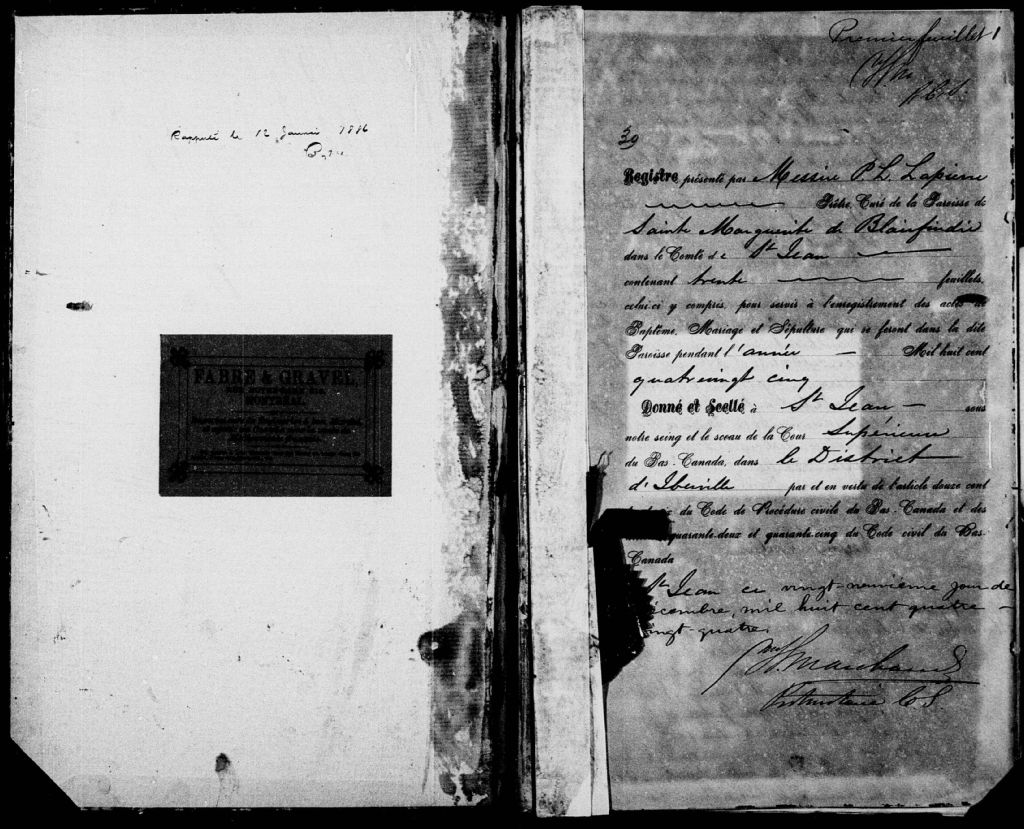 le 12 Janvier 1886
FABRE & GRAVEL,
MONTREAL.
Premier feuillet 1
39
Registre présenté par Messire P. L. Lapierre
Prêtre, Curé de la Paroisse de
Sainte Marguerite de Blairfindie
dans le Comté de St Jean
contenant trente feuillets,
celui-ci y compris, pour servir à l'enregistrement des actes de
Baptême, Mariage et Sépulture qui se feront dans la dite
Paroisse pendant l'année Mil huit cent
quatrevingt cinq
Donné et Scellé à St Jean sous
notre seing et le sceau de la Cour Supérieure
du Bas-Canada, dans le District
d'Iberville par et en vertu de l'article douze cent
du Code de Procédure civile du Bas-Canada et des
quarante-deux et quarante-cinq du Code civil du Bas-
Canada
St Jean ce vingt-neuvième jour de
écembre, mil huit cent quatre
ingt quatre.
Marchand
Protonotaire C S